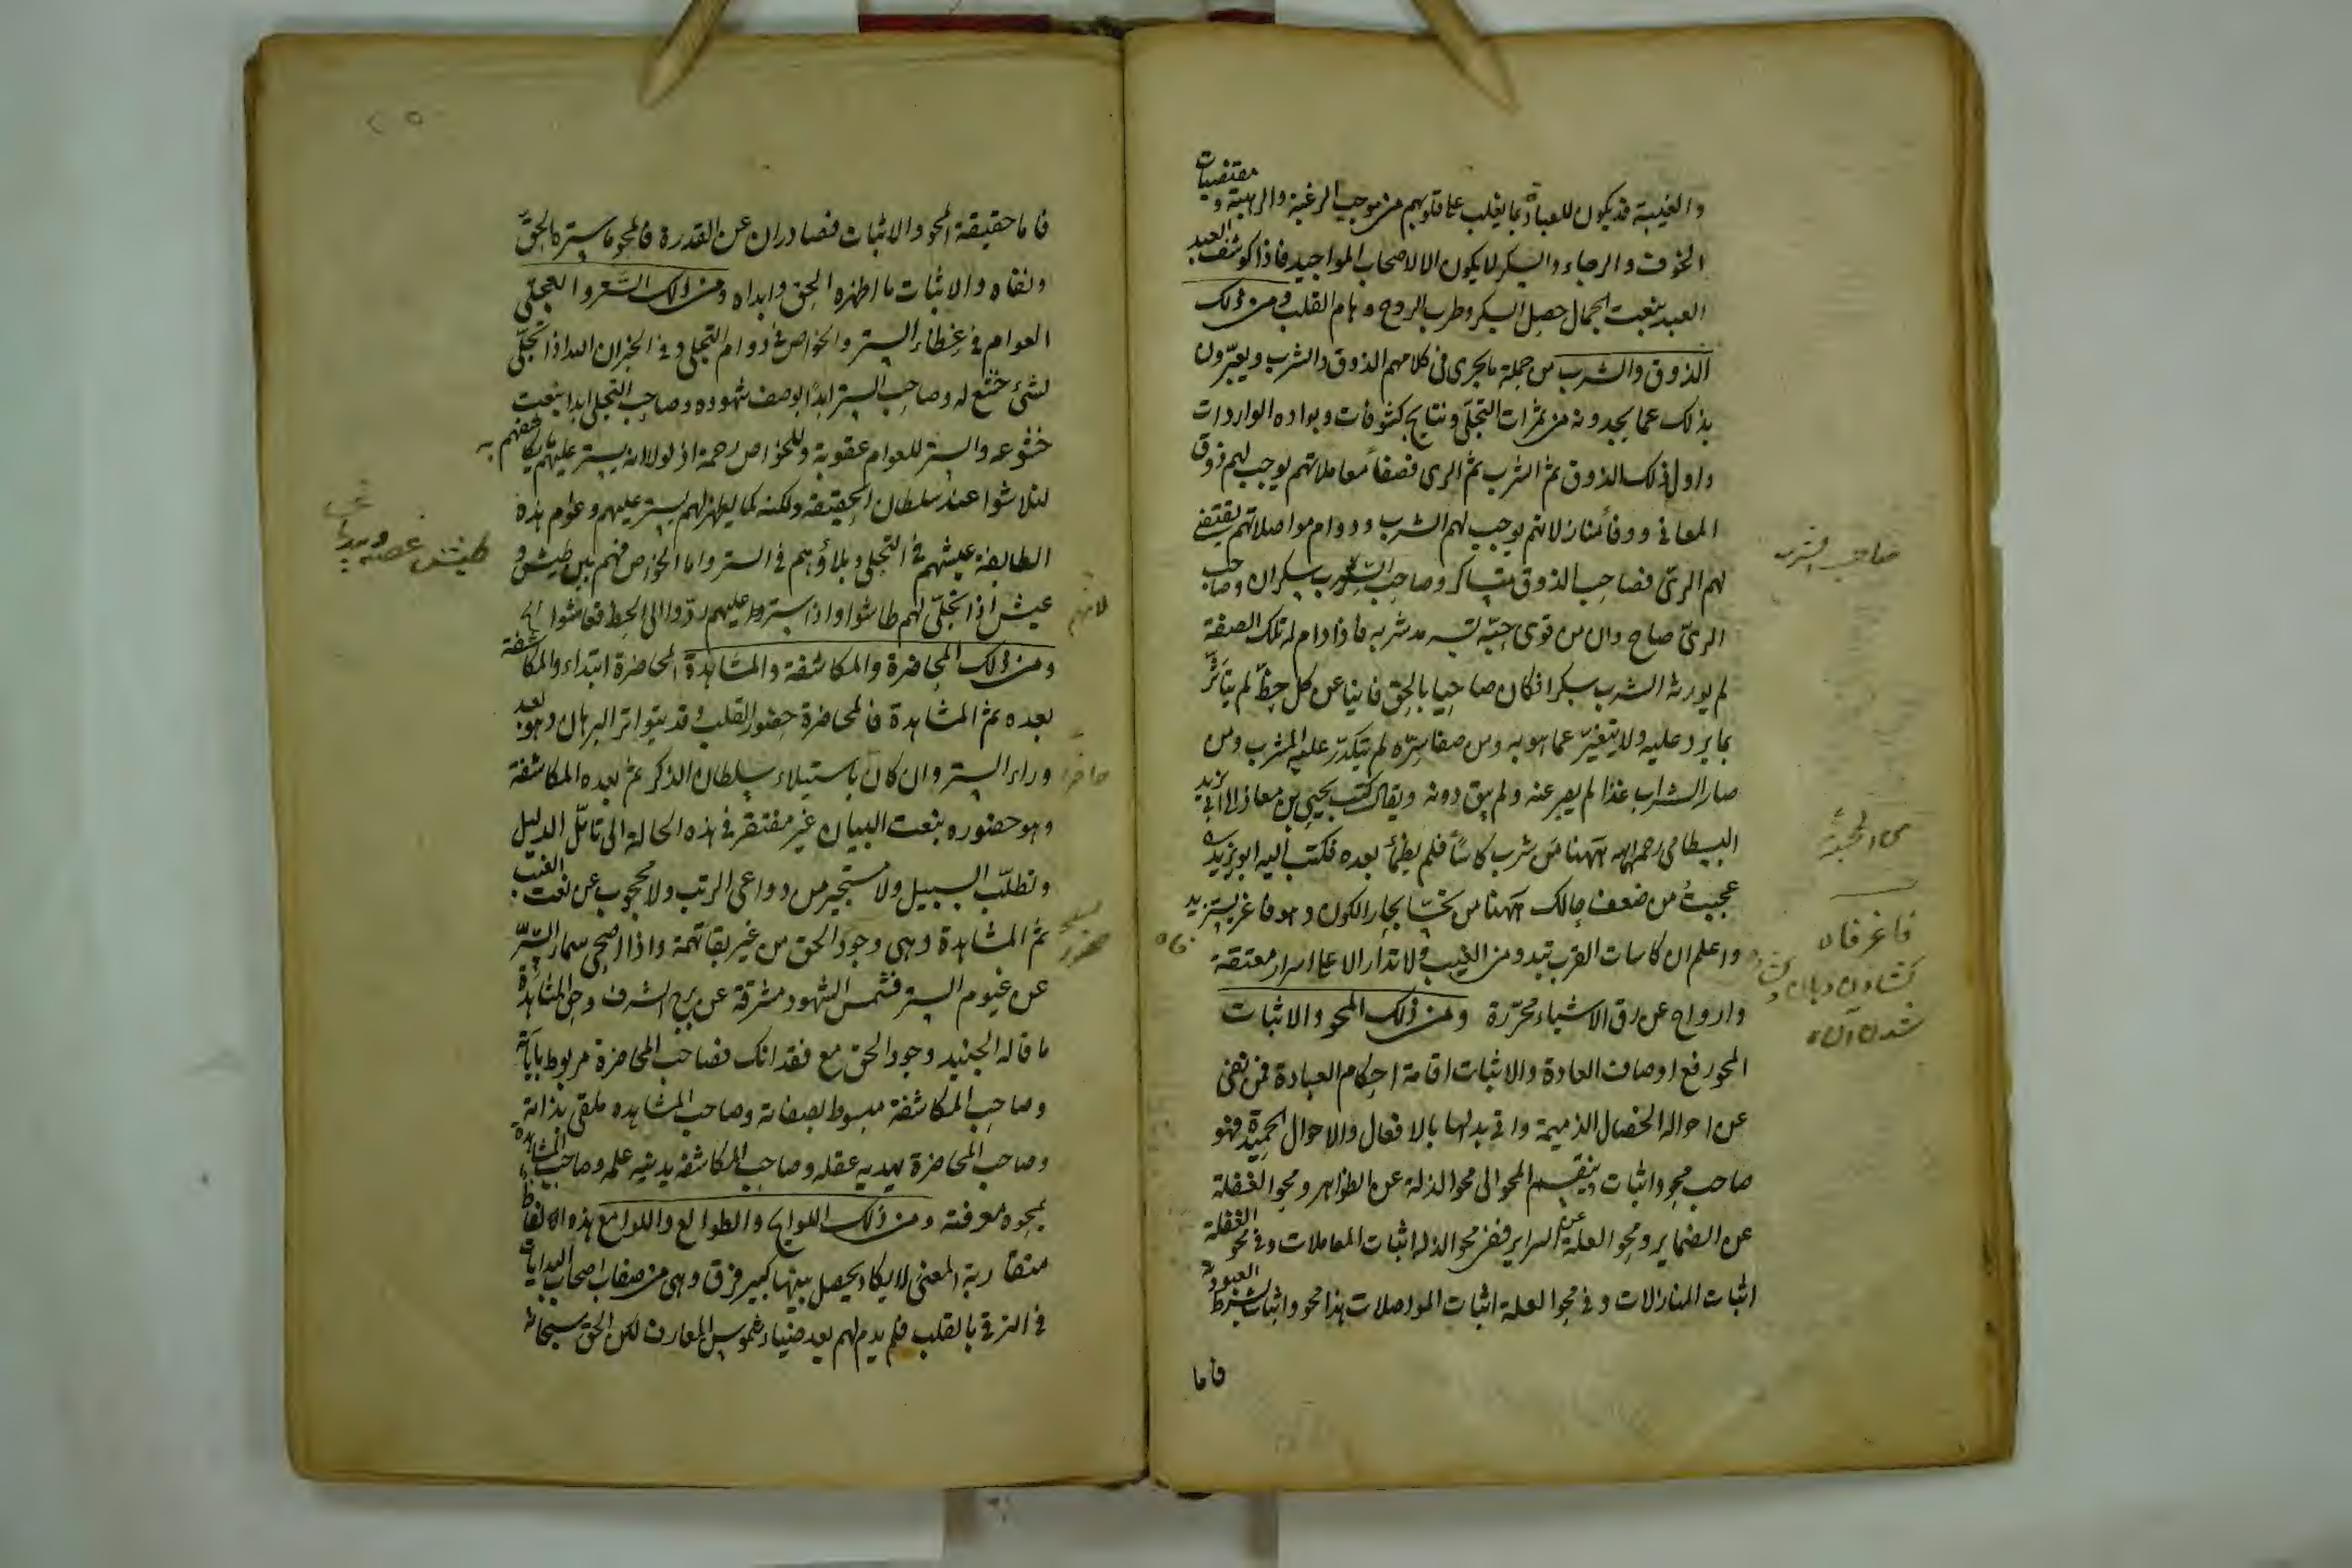 والغيبة قد يكون للعباد بما يغلب على قلوبهم من موجب الرغبة والرهبة و مقتضيات
الخوف والرجاء والسكر لا يكون الا لاصحاب المواجيد فاذا كوشف العبد
العبد بنعت الجمال حصل السكر وطرب الروح وهام القلب ومن ذلك
الذوق والشرب من جملة ما يجرى فى كلامهم الذوق والشرب ويعبّرون
بذلك عما يجدونه من ثمرات التجلّى ونتايج كشوفات وبواده الواردات
واول ذلك الذوق ثم الشرب ثم الرى فصفأ معاملاتهم يوجب لهم ذوق
المعانى ووفأ منازلاتهم يوجب لهم الشرب ودوام مواصلاتهم يقتضى
لهم الرىّ فصاحب الذوق متساكر وصاحب الشرب سكران وصاحب
الرىّ صاح وان من قوى حبّه تسرمد شربه فاذا دام له تلك الصفة
لم يورثه الشرب سكرا فكان صاحيا بالحق فانيا عن كل حظّ لم يتأثّر
بما يرد عليه ولا يتغيّر عما هو به ومن صفا سرّه لم يتكدّر عليه المشرب ومن
صار الشراب غذا لم يصبر عنه ولم يبق دونه ويقال كتب يحيى بن معاذ الى ابى يزيد
البسطامى رحمه الله ههنا من شرب كاساً فلم يظمأ بعده فكتب اليه ابو يزيد
عجبتُ من ضعف حالك ههنا من يحتسا بحار الكون وهو فاغر يستزيد
واعلم ان كاسات القرب تبدو من الغيب ولا تدار الا على اسرار معتقة
وارواح عن رق الاشياء محرّرة ومن ذلك المحو والاثبات
المحو رفع اوصاف العادة والاثبات اقامة احكام العبادة فمن نفى
عن احواله الخصال الذميمة واتى بدلها بالافعال والاحوال الحميدة فهو
صاحب محو واثبات وينقسم المحو الى محو الذلة عن الظواهر ومحو الغفلة
عن الضماير ومحو العلة عن السراير ففى محو الذلة اثبات المعاملات وفى محو الغفلة
اثبات المنازلات وفى محو العلة اثبات المواصلات هذا محو واثبات بشرط العبودية
فاما
صاحب شرب
من المحبة
فاغر فاه
كشادن دهان و
شدن آن
فاه
٢٥
فاما حقيقة المحو والاثبات فصادران عن القدرة فالمحو ما ستره الحقّ
ونفاه والاثبات ما اظهره الحق وابداه ومن ذلك الستر والتجلّى
العوام فى غطاء الستر والخواص فى دوام التجلى وفى الخبر ان الله اذا تجلّى
لشئ خشع له وصاحب الستر ابدًا بوصف شهوده وصاحب التجلى ابدا بنعت
خشوعه والستر للعوام عقوبة وللخواص رحمة اذ لولا انه يستر عليهم ما يكاشفهم به
لتلاشوا عند سلطان الحقيقة ولكنه كما يظهر لهم يستر عليهم وعوام هذه
الطايفة عيشهم فى التجلى وبلاؤهم فى الستر واما الخواص فهم بين طيش و
عيش اذا تجلّى لهم طاشوا واذا ستر عليهم ردّوا الى الحظ فعاشوا
ومن ذلك المحاضرة والمكاشفة والمشاهدة المحاضرة ابتداء والمكاشفة
بعده ثم المشاهدة فالمحاضرة حضور القلب وقد يتواتر البرهان وهو بعد
وراء الستر وان كان باستيلاء سلطان الذكر ثم بعده المكاشفة
وهو حضوره بنعت البيان غير مفتقر فى هذه الحالة الى تأمّل الدليل
وتطلّب السبيل ولا مستجير من دواعى الريب ولا محجوب عن نعت الغيب
ثم المشاهدة وهى وجود الحق من غير بقأ تهمة واذا اصحى سمأ السّرّ
عن غيوم الستر فشمس الشهود مشرقة عن برج الشرف وحق المشاهدة
ما قاله الجنيد وجود الحق مع فقدانك فصاحب المحاضرة مربوط بآياته
وصاحب المكاشفة مبسوط بصفاته وصاحب المشاهده ملقى بذاته
وصاحب المحاضرة يهديه عقله وصاحب المكاشفه يدنيه علمه وصاحب المشاهدة
يمحوه معرفته ومن ذلك اللوايح والطوالع واللوامع هذه الالفاظ
متقاربة المعنى لا يكاد يحصل بينها كبير فرق وهى من صفات اصحاب البدايات
فى الترقى بالقلب فلم يدم لهم بعد ضياء شموس المعارف لكن الحق سبحانه
لانهم
طيش غصه
حضور